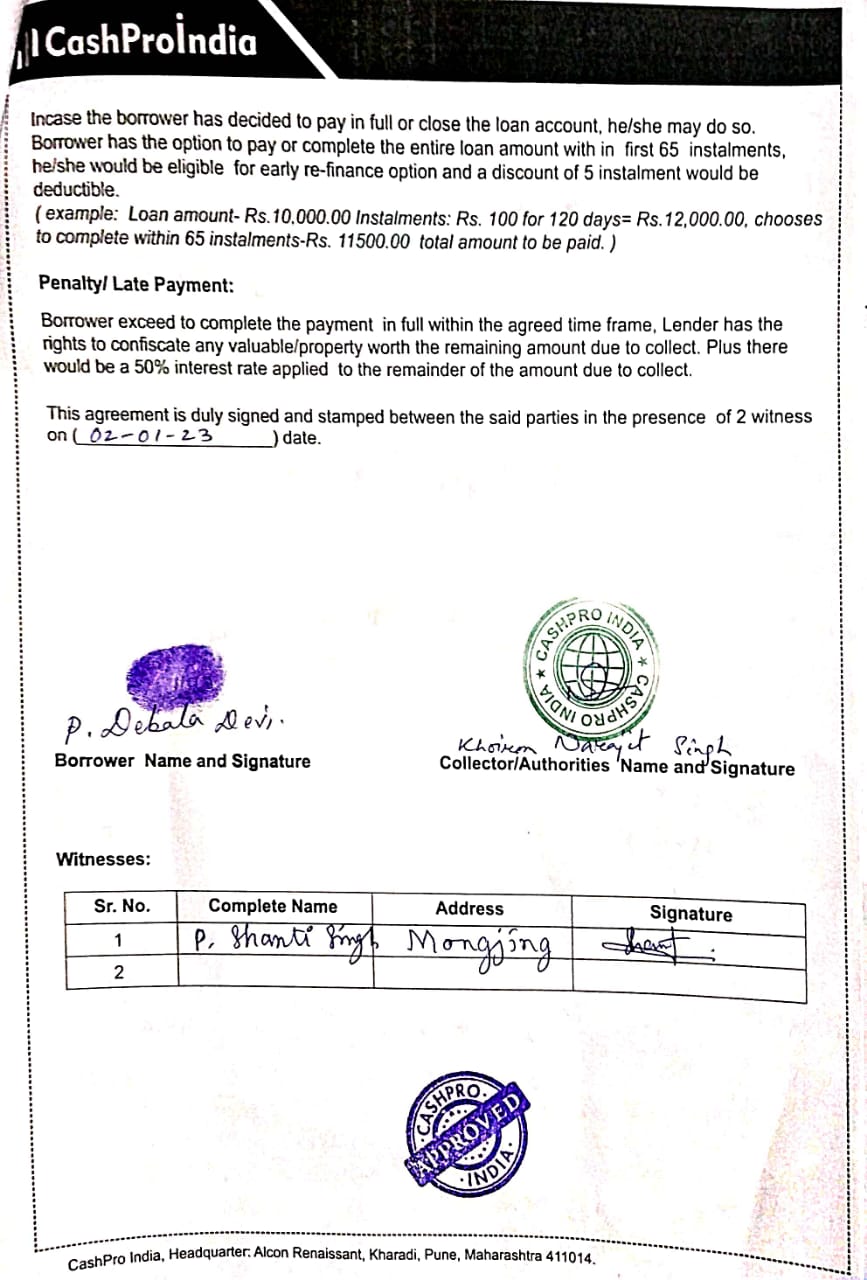 CashProindia
Incase the borrower has decided to pay in full or close the loan account, he/she may do so.
Borrower has the option to pay or complete the entire loan amount with in first 65 instalments,
he/she would be eligible for early re-finance option and a discount of 5 instalment would be
deductible.
( example: Loan amount- Rs.10,000.00 Instalments: Rs. 100 for 120 days= Rs.12,000.00, chooses
to complete within 65 instalments-Rs. 11500.00 total amount to be paid. )
Penalty/ Late Payment:
Borrower exceed to complete the payment in full within the agreed time frame, Lender has the
rights to confiscate any valuable/property worth the remaining amount due to collect. Plus there
would be a 50% interest rate applied to the remainder of the amount due to collect.
This agreement is duly signed and stamped between the said parties in the presence of 2 witness
on ( 02-01-23 ) date.
CASHPRO INDIA ★ CASHPRO INDIA ★
P. Debala Devi.
Khoirom Narajit Singh
Borrower Name and Signature
Collector/Authorities Name and Signature
Witnesses:
Sr. No. Complete Name Address Signature
1 P. Shanti Singh Mongjing Shanti
2
CASHPRO APPROVED INDIA
CashPro India, Headquarter: Alcon Renaissant, Kharadi, Pune, Maharashtra 411014.